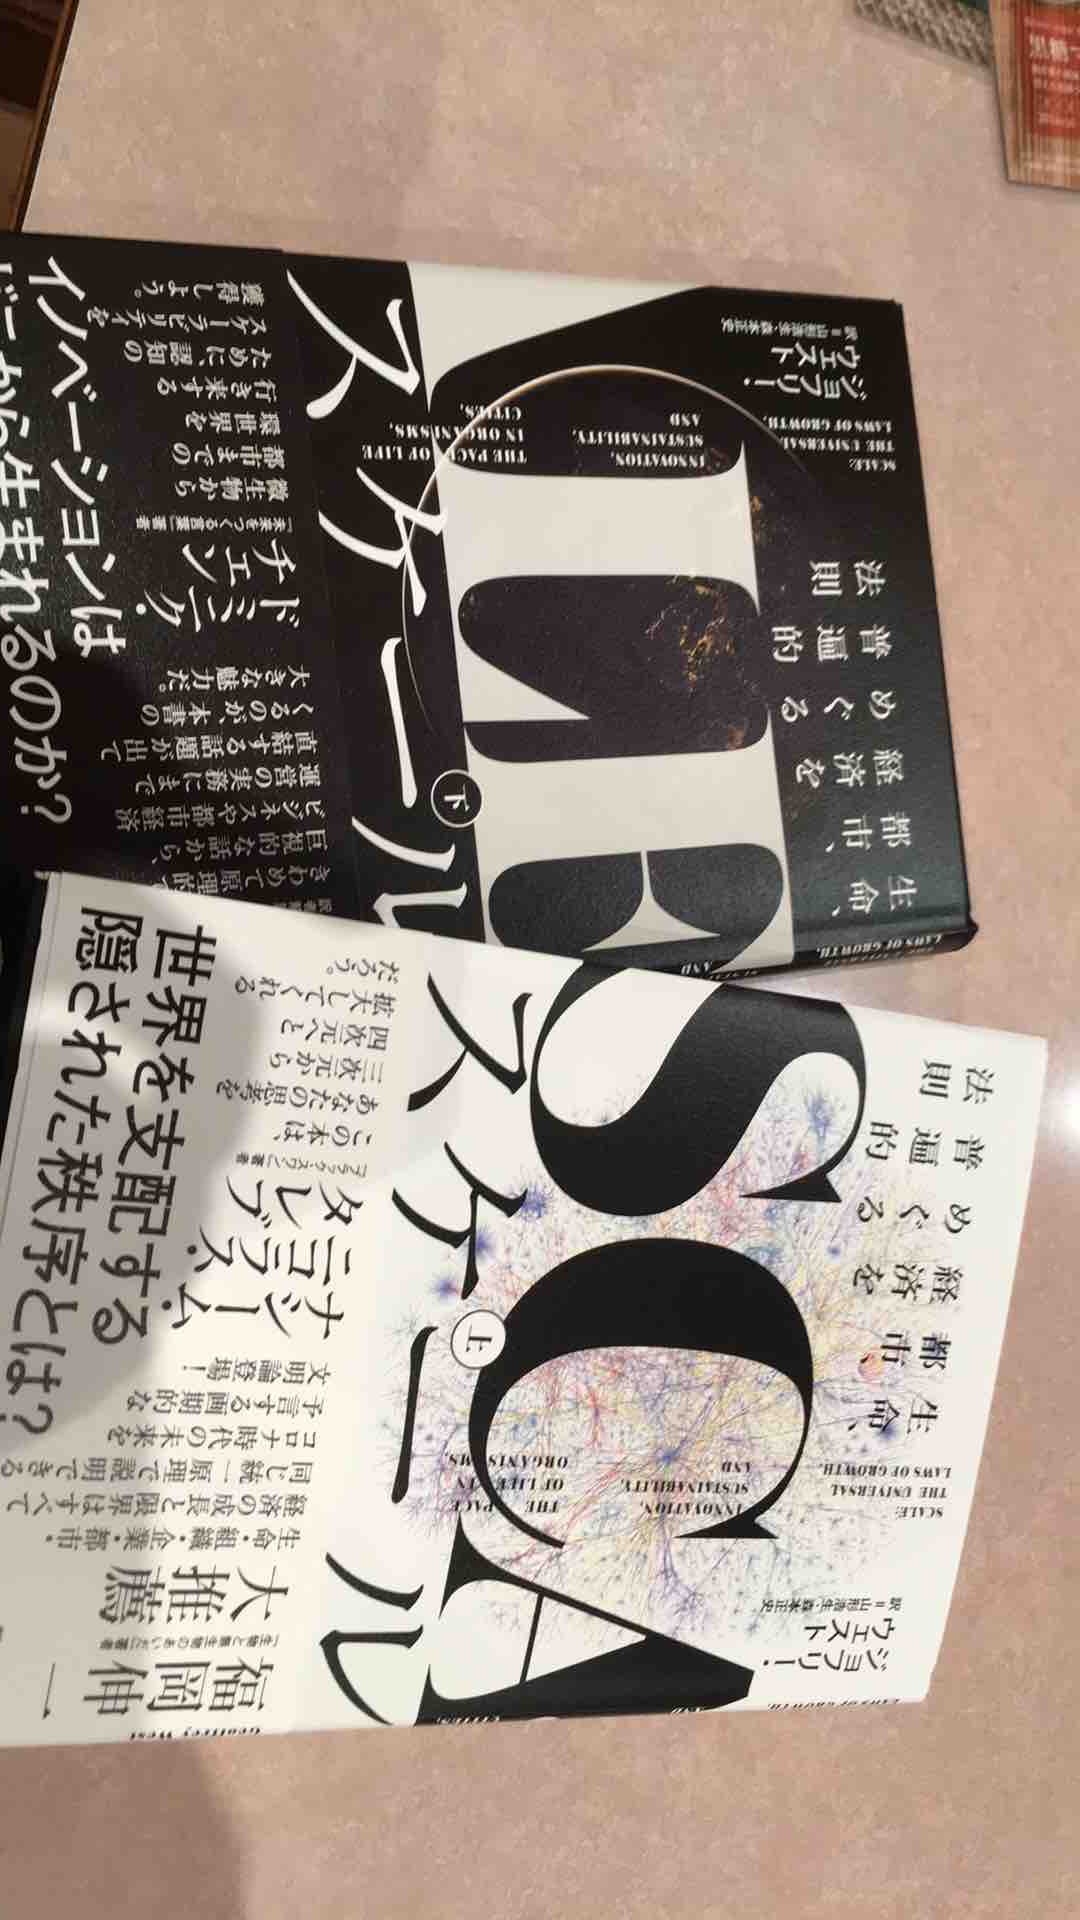 スケール
下
生命、
都市、
経済を
めぐる
普遍的
法則
ジョフリー・
ウェスト
訳=山形浩生・森本正史
SCALE:
THE UNIVERSAL
LAWS OF GROWTH,
INNOVATION,
SUSTAINABILITY,
AND
THE PACE OF LIFE
IN ORGANISMS,
CITIES,
LE
イノベーションは
どこから生まれるのか?
ドミニク・
チェン
『未来をつくる言葉』著者
微生物から
都市までの
環世界を
行き来する
ために、認知の
スケーラビリティを
獲得しよう。
きわめて原理的で
巨視的な話から、
ビジネスや都市経済
運営の実務にまで
直結する話題が出て
くるのが、本書の
大きな魅力だ。
LAWS OF GROWTH,
AND
スケール
上
SCA
生命、
都市、
経済を
めぐる
普遍的
法則
ジョフリー・
ウェスト
訳=山形浩生・森本正史
SCALE:
THE UNIVERSAL
LAWS OF GROWTH,
INNOVATION,
SUSTAINABILITY,
AND
THE PACE
OF LIFE IN
ORGANISMS,
CITIES,
世界を支配する
隠された秩序とは?
ナシーム・
ニコラス・
タレブ
『ブラック・スワン』著者
この本は、
あなたの思考を
三次元から
四次元へと
拡大してくれる
だろう。
福岡伸一
『生物と無生物のあいだ』著者
大推薦
生命・組織・企業・都市・
経済の成長と限界はすべて
同じ統一原理で説明できる
コロナ時代の未来を
予言する画期的な
文明論登場!
Geoffrey West
LAWS OF GROWTH,
AND